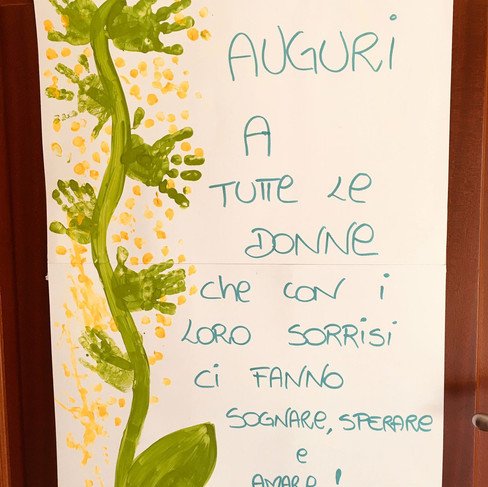 AUGURI
A
TUTTE LE
DONNE
che CON i
LORO SORRISI
ci FANNO
SOGNARE, SPERARE
e
AMARE!